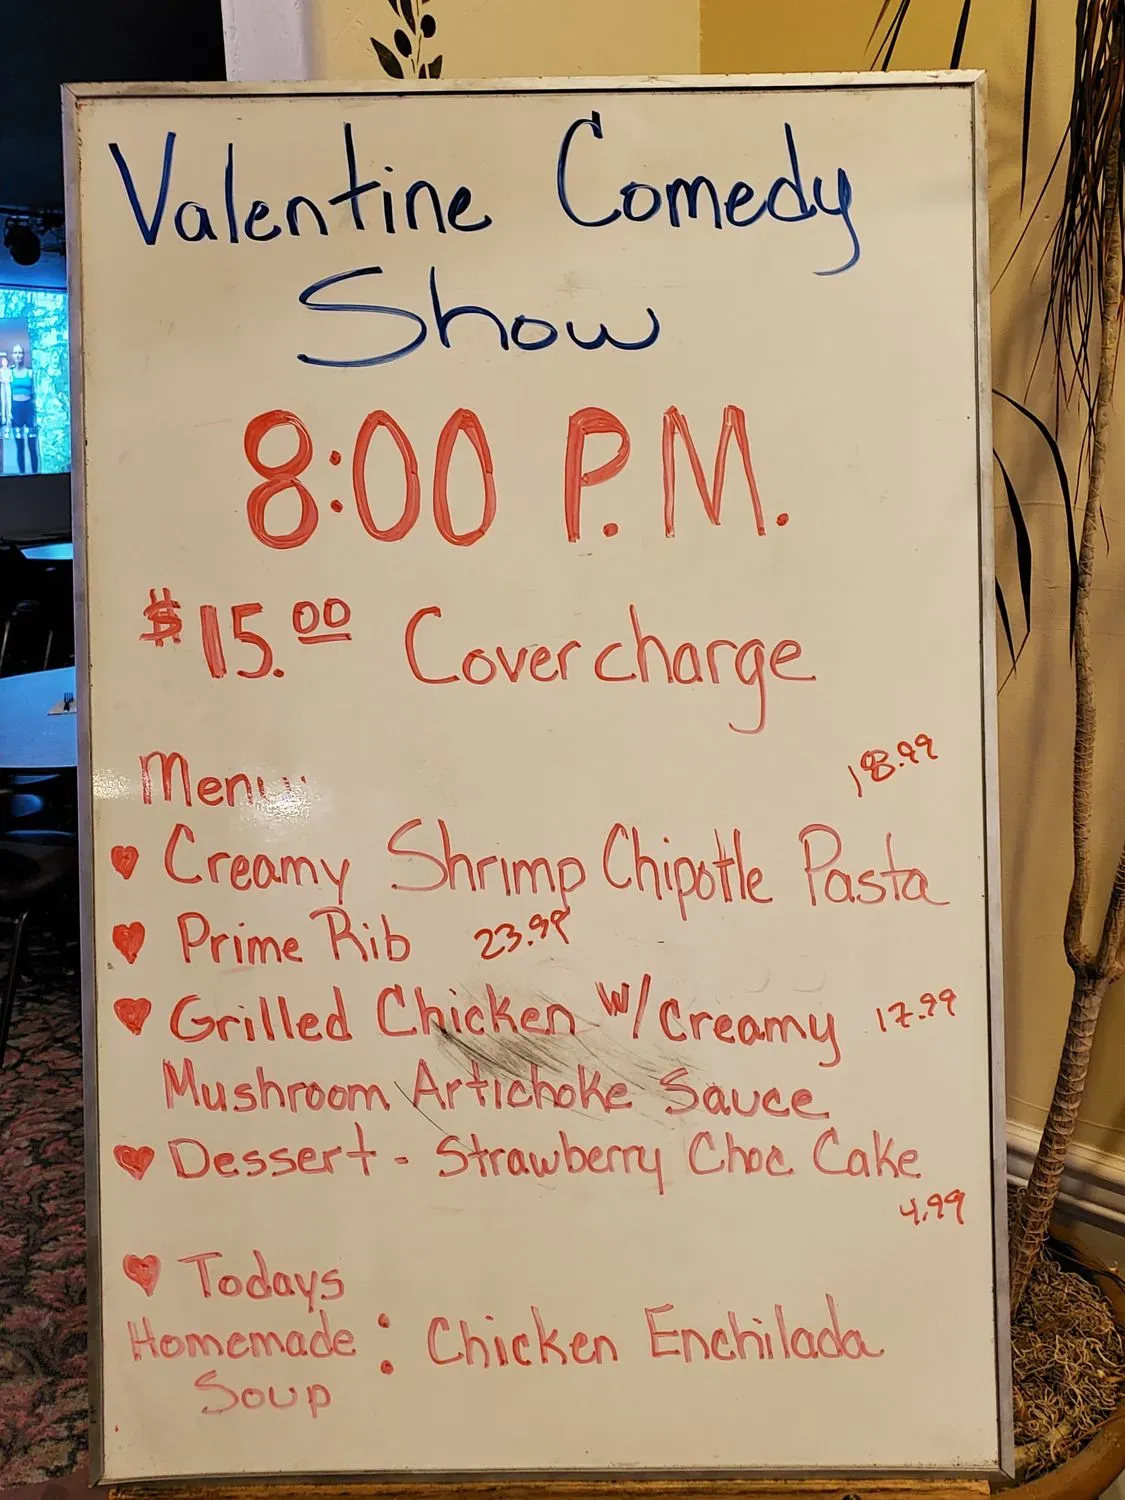 Valentine Comedy
Show
8:00 P.M.
$15.00 Cover charge
Menu
18.99
Creamy Shrimp Chipotle Pasta
Prime Rib 23.99
Grilled Chicken w/ Creamy 17.99
Mushroom Artichoke Sauce
Dessert - Strawberry Choc Cake
4.99
Todays
Homemade : Chicken Enchilada
Soup